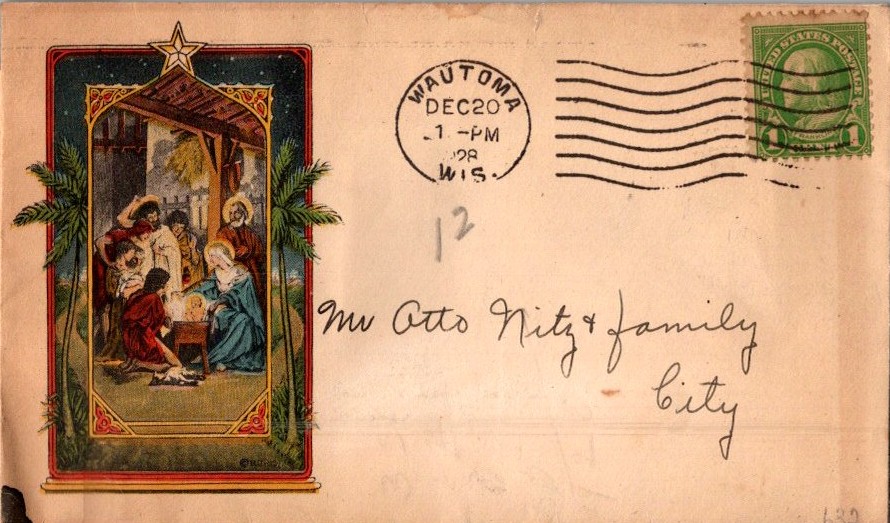 WAUTOMA
DEC 20
1 -PM
'28
WIS.
UNITED STATES POSTAGE
FRANKLIN
1 1
12
Mr Otto Nitz & family
City